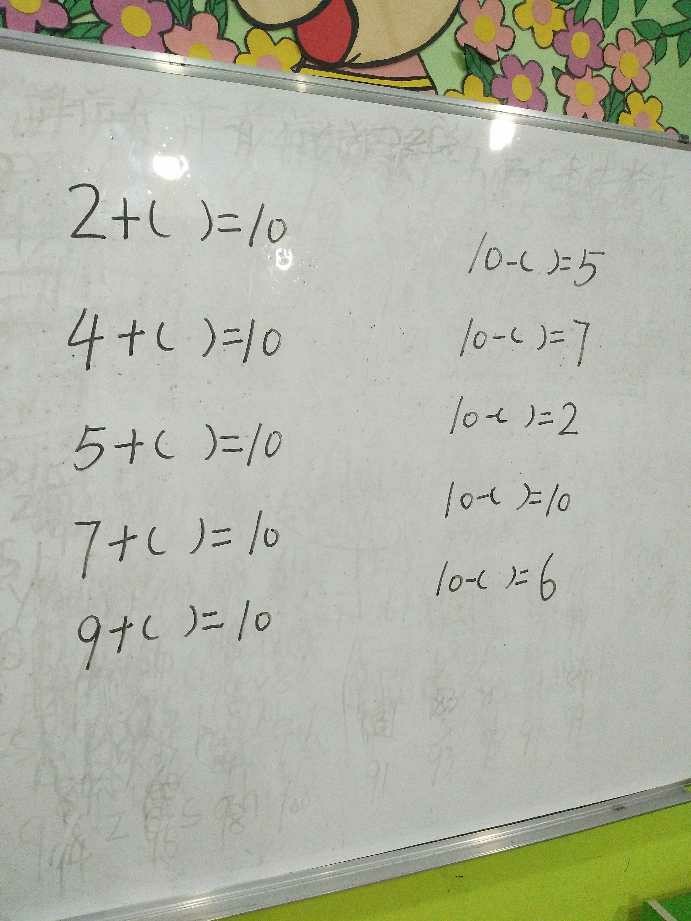 2+( )=10
4+( )=10
5+( )=10
7+( )=10
9+( )=10
10-( )=5
10-( )=7
10-( )=2
10-( )=10
10-( )=6